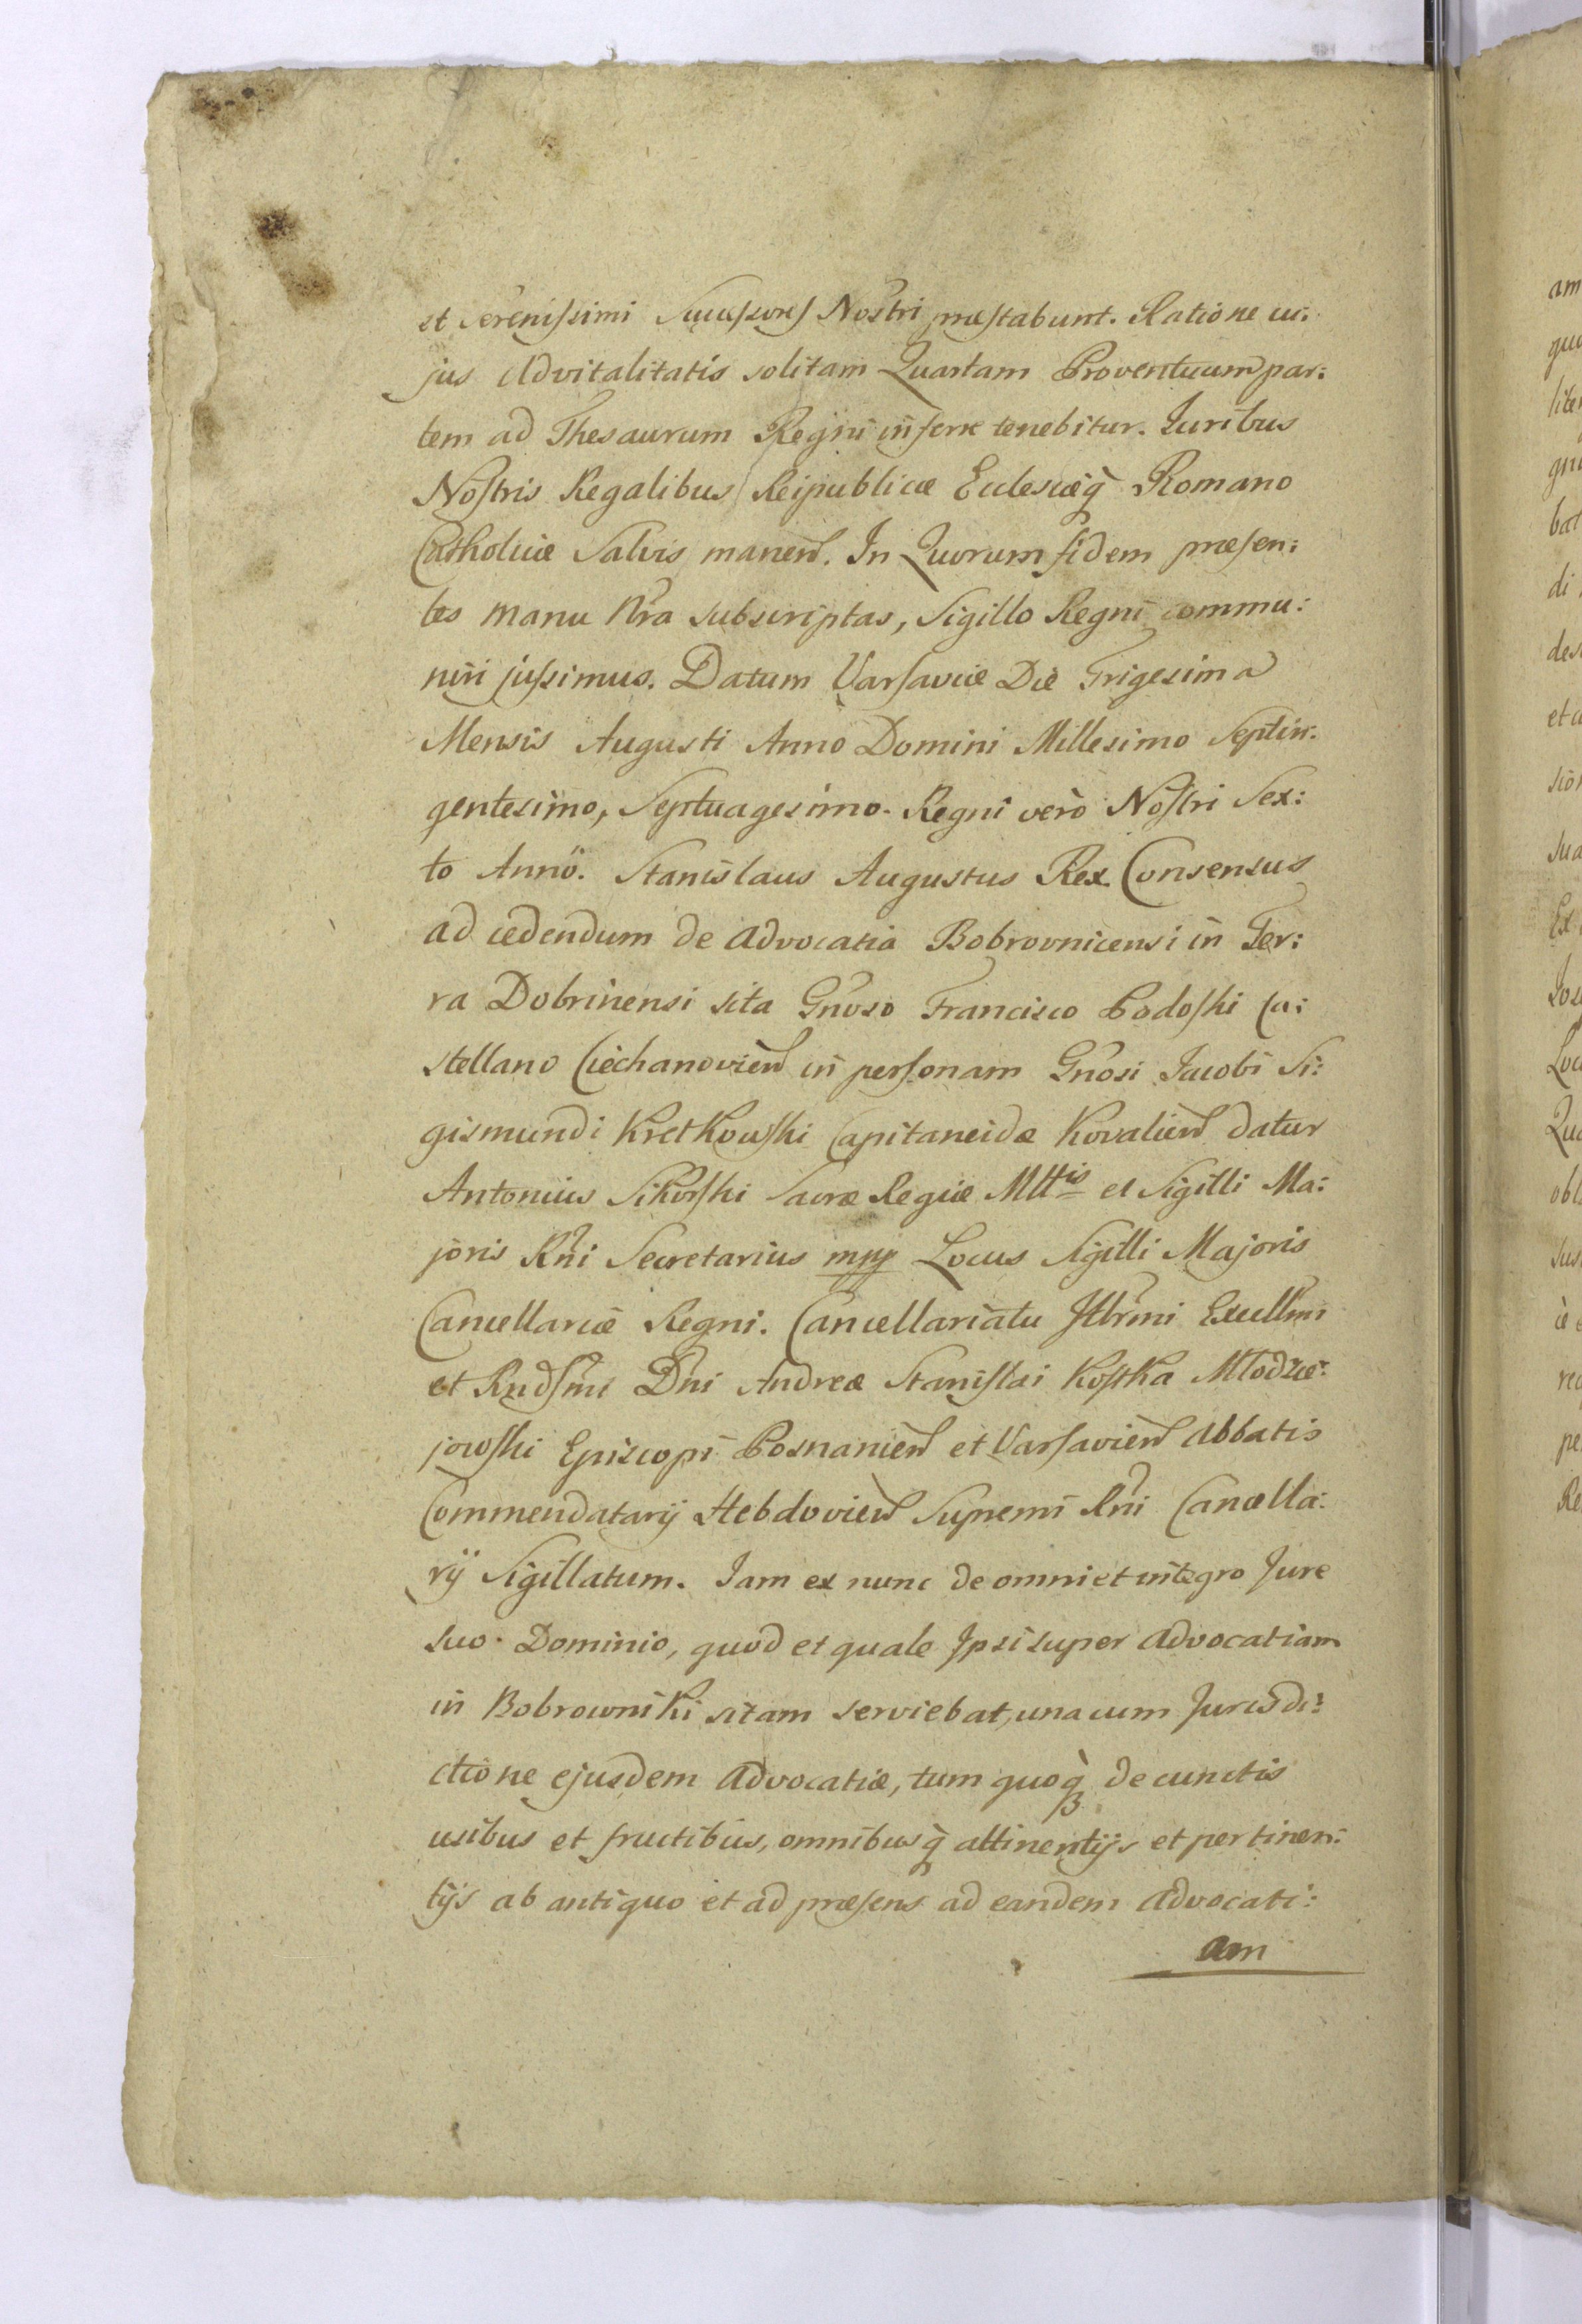 et Serenissimi Successores Nostri præstabunt. Ratione cu:
jus Advitalitatis solitam Quartam Proventuum par:
tem ad Thesaurum Regni inferre tenebitur. Juribus
Nostris Regalibus Reipublicæ Eclesiæq̀ Romano
Catholicæ Salvis manen. In Quorum fidem præsen:
tes manu Nra subscriptas, Sigillo Regni commu:
niri jussimus. Datum Varsaviæ Die Trigesima
Mensis Augusti Anno Domini Millesimo Septin:
gentesimo, Septuagesimo. Regni verò Nostri Sex:
to Anno. Stanislaus Augustus Rex. Consensus
ad cedendum de Advocatia Bobrovnicensi in Ter:
ra Dobrinensi sita Gnoso Francisco Podoski Ca:
stellano Ciechanovien in personam Gnosi Jacobi Si:
gismundi Kretkowski Capitaneidæ Kovalien datur
Antonius Sikorski Sacræ Regiæ Mttis et Sigilli Ma:
joris Rni Secretarius mpp Locus Sigilli Majoris
Cancellariæ Regni. Cancellariatu Illrmi Excellmi
et Rndsmi Dni Andreæ Stanislai Kostka Młodzie:
jowski Episcopi Posnanien et Varsavien Abbatis
Commendatarij Hebdovien Supremi Rni Cancella:
rij Sigillatum. Jam ex nunc de omni et integro Jure
suo. Dominio, quod et quale Ipsi super Advocatiam
in Bobrowniki sitam serviebat, una cum Jurisdi:
ctione ejusdem Advocatiæ, tum quoq̀ de cunctis
usibus et fructibus, omnibusq̀ attinentijs et pertinen:
tijs ab antiquo et ad præsens ad eandem Advocati:
am